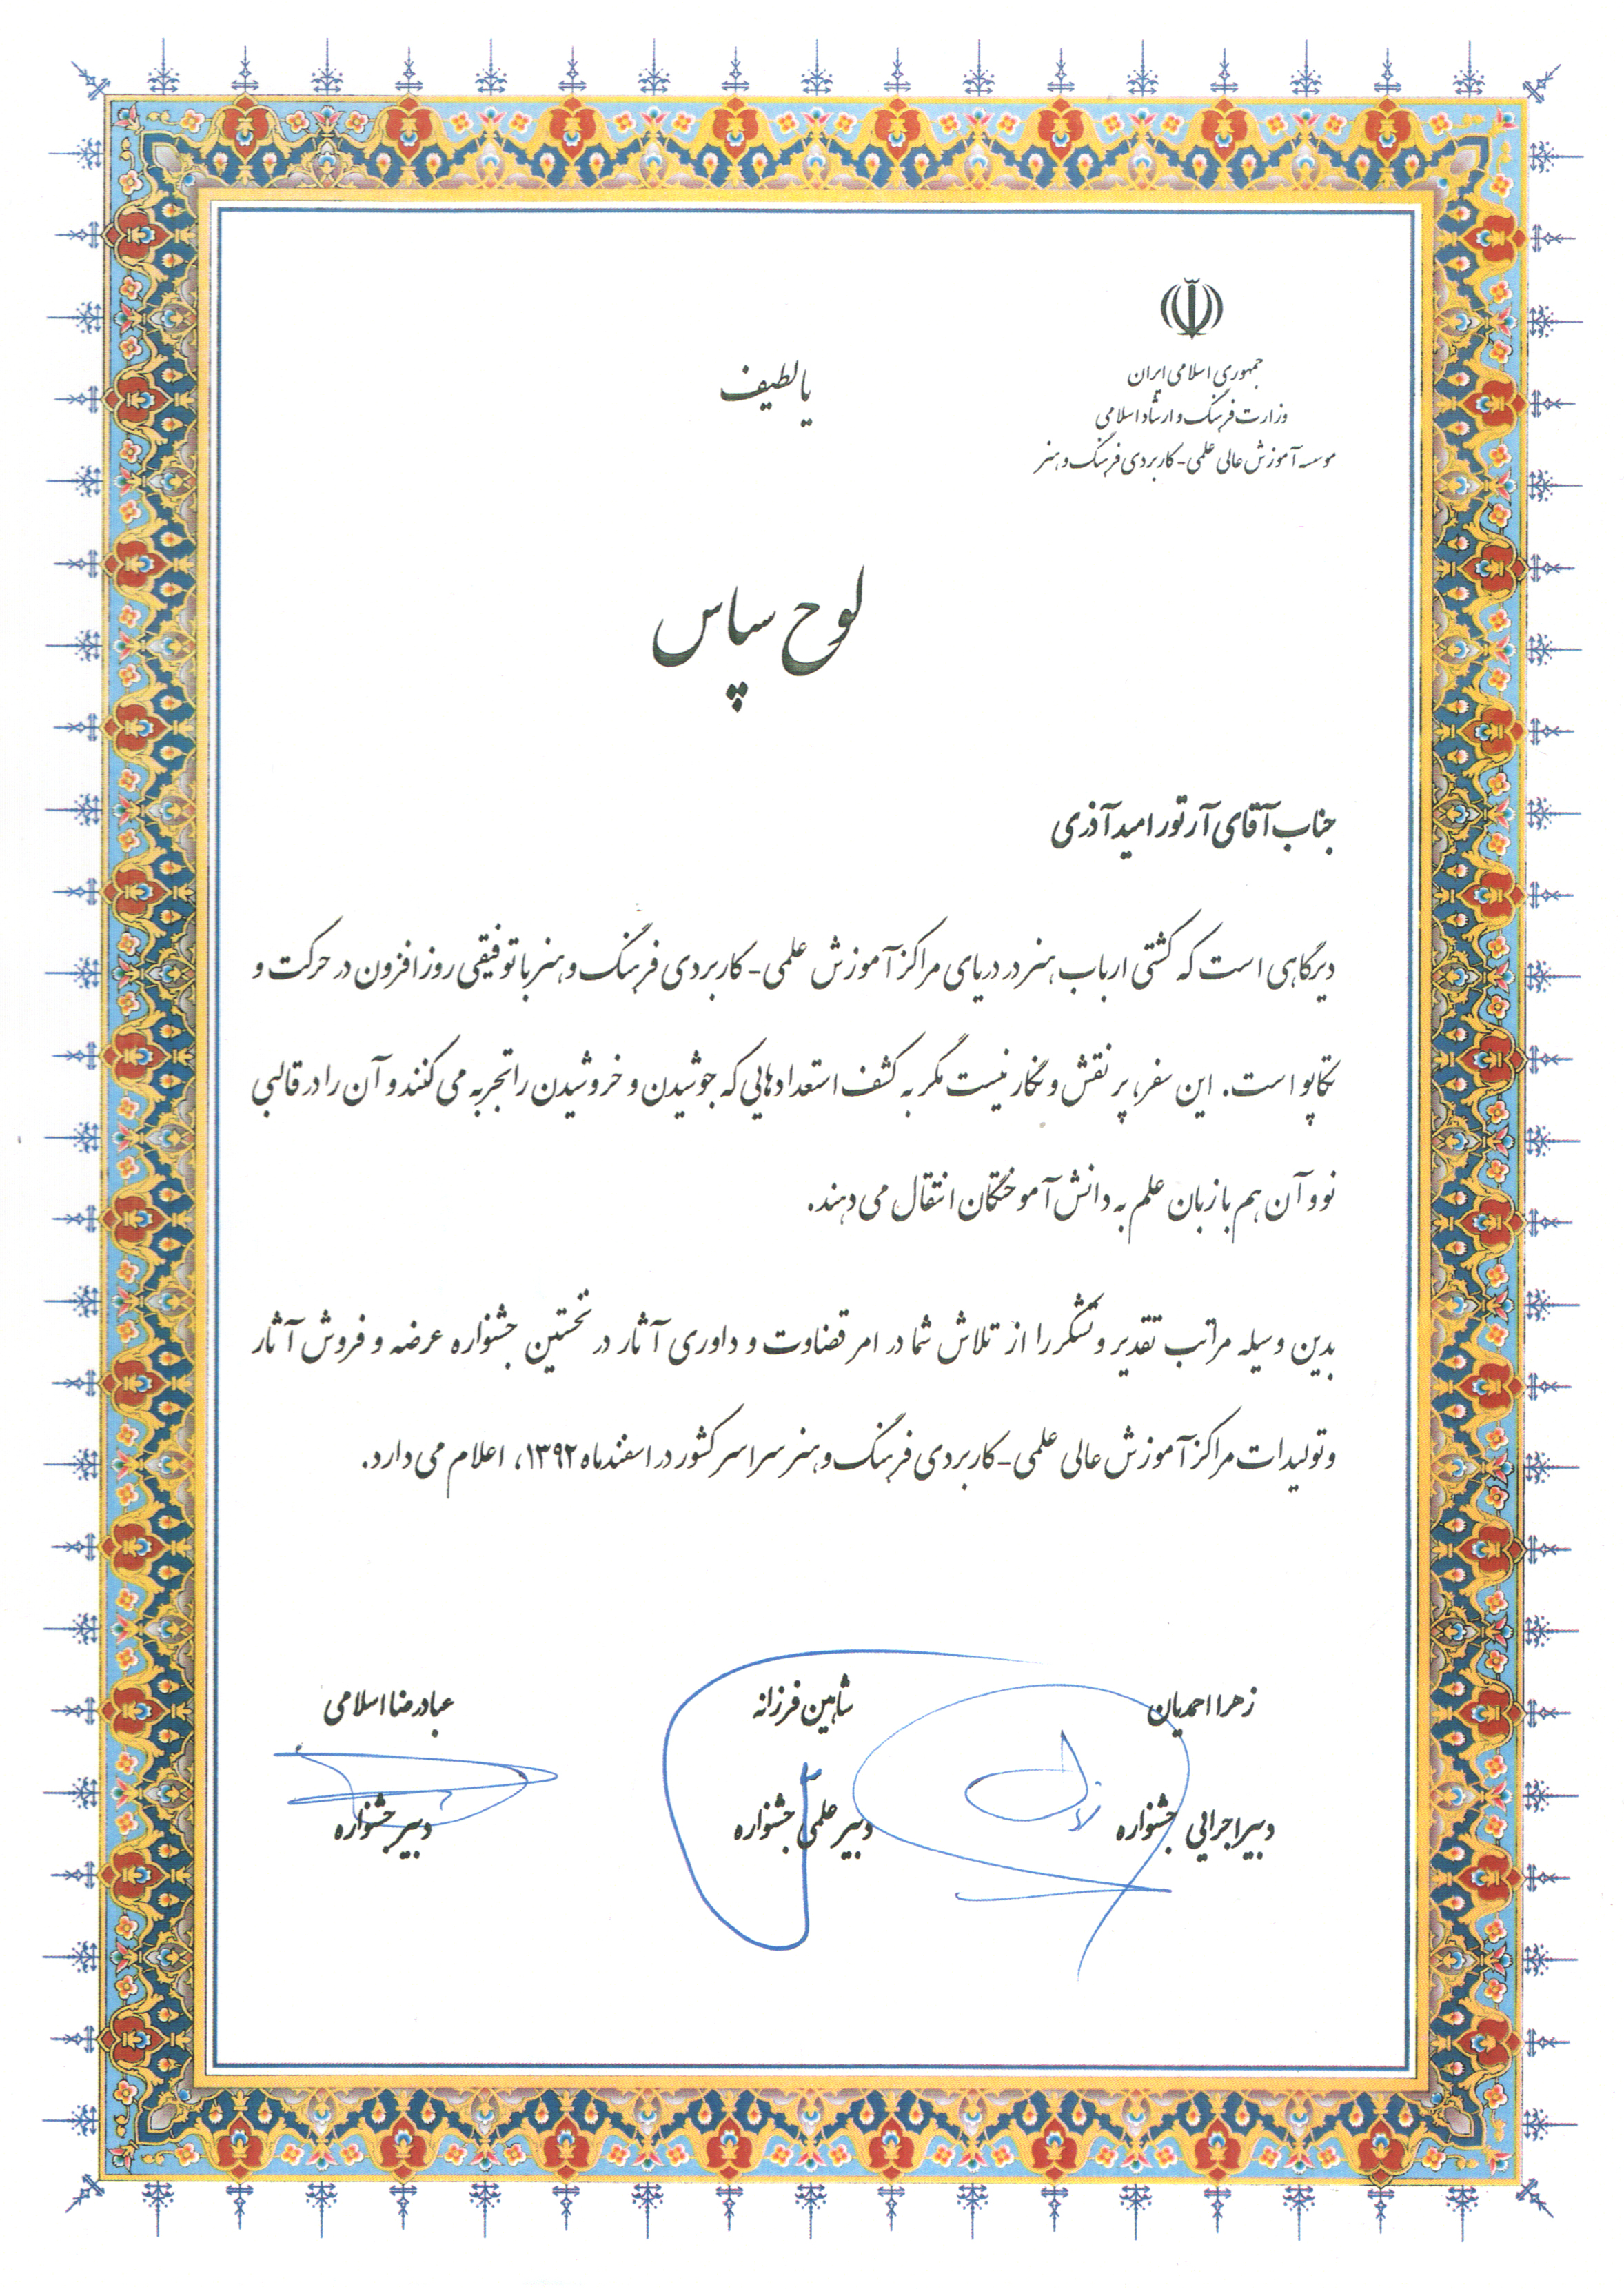 جمهوری اسلامی ایران
وزارت فرهنگ و ارشاد اسلامی
موسسه آموزش عالی علمی - کاربردی فرهنگ و هنر
یا لطیف
لوح سپاس
جناب آقای آرتور امید آذری
دیرگاهی است که کشتی ارباب هنر در دریای مراکز آموزش علمی - کاربردی فرهنگ و هنر با توفیقی روز افزون در حرکت و
تکاپو است. این سفر، پر نقش و نگار نیست مگر به کشف استعدادهایی که جوشیدن و خروشیدن را تجربه می کنند و آن را در قالبی
نو و آن هم با زبان علم به دانش آموختگان انتقال می دهند.
بدین وسیله مراتب تقدیر و تشکر را از تلاش شما در امر قضاوت و داوری آثار در نخستین جشنواره عرضه و فروش آثار
و تولیدات مراکز آموزش عالی علمی - کاربردی فرهنگ و هنر سراسر کشور در اسفندماه ۱۳۹۲، اعلام می دارد.
زهرا احمدیان
دبیر اجرایی جشنواره
شاهین فرزانه
دبیر علمی جشنواره
عبادرضا اسلامی
دبیر جشنواره